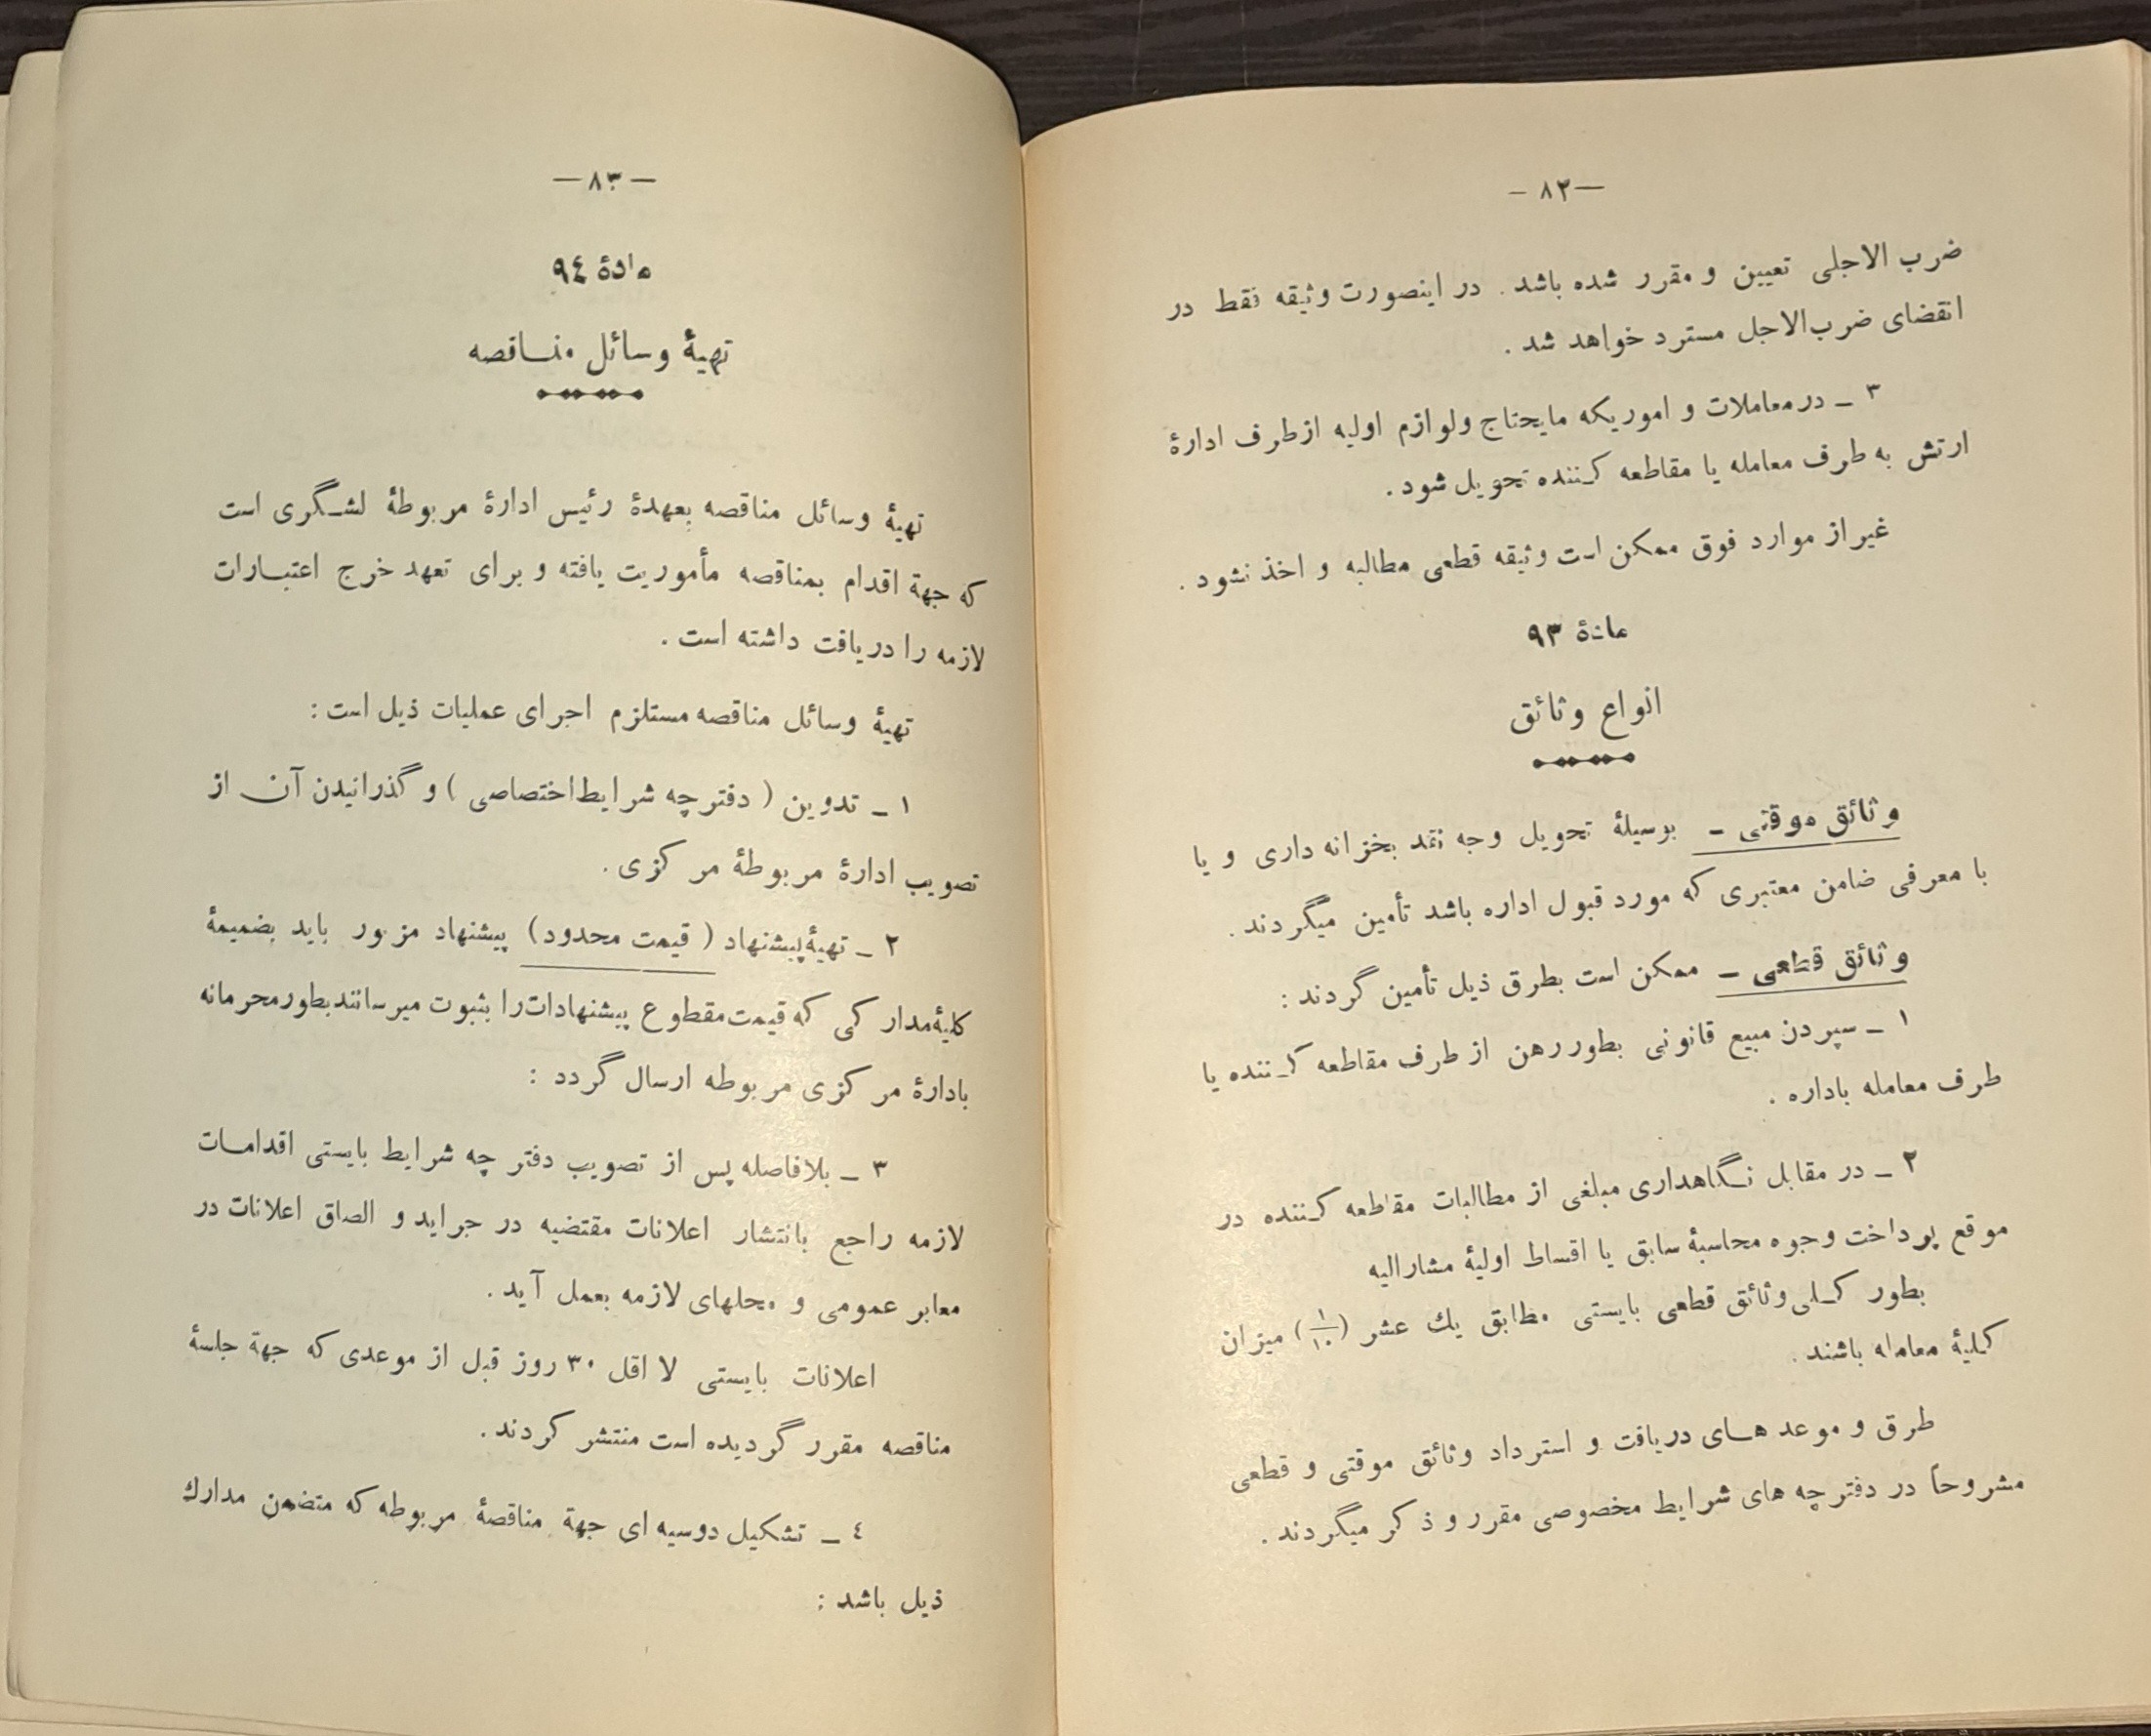 — ۸۲ —
ضرب الاجلی تعیین و مقرر شده باشد . در اینصورت وثیقه فقط در
انقضای ضرب‌الاجل مسترد خواهد شد .
۳ ـ در معاملات و اموریکه مایحتاج ولوازم اولیه ازطرف ادارهٔ
ارتش به طرف معامله یا مقاطعه کننده تحویل شود .
غیر از موارد فوق ممکن است وثیقه قطعی مطالبه و اخذ نشود .
مادهٔ ۹۳
انواع وثائق
وثائق موقتی ـ بوسیلهٔ تحویل وجه نقد بخزانه داری و یا
با معرفی ضامن معتبری که مورد قبول اداره باشد تأمین میگردند .
وثائق قطعی ـ ممکن است بطرق ذیل تأمین گردند :
۱ ـ سپردن مبیع قانونی بطوررهن از طرف مقاطعه کننده یا
طرف معامله باداره .
۲ ـ در مقابل نگاهداری مبلغی از مطالبات مقاطعه کننده در
موقع پرداخت وجوه محاسبهٔ سابق یا اقساط اولیهٔ مشارالیه
بطور کلی وثائق قطعی بایستی مطابق یك عشر (۱/۱۰) میزان
کلیهٔ معامله باشند .
طرق و موعد های دریافت و استرداد وثائق موقتی و قطعی
مشروحاً در دفترچه های شرایط مخصوصی مقرر و ذکر میگردند .
— ۸۳ —
مادهٔ ۹٤
تهیهٔ وسائل مناقصه
تهیهٔ وسائل مناقصه بعهدهٔ رئیس ادارهٔ مربوطهٔ لشگری است
که جهة اقدام بمناقصه مأموریت یافته و برای تعهد خرج اعتبارات
لازمه را دریافت داشته است .
تهیهٔ وسائل مناقصه مستلزم اجرای عملیات ذیل است :
۱ ـ تدوین ( دفترچه شرایط اختصاصی ) و گذرانیدن آن از
تصویب ادارهٔ مربوطهٔ مرکزی .
۲ ـ تهیهٔ پیشنهاد ( قیمت محدود) پیشنهاد مزبور باید بضمیمهٔ
کلیهٔ مدارکی که قیمت مقطوع پیشنهادات را بثبوت میرسانند بطور محرمانه
بادارهٔ مرکزی مربوطه ارسال گردد :
۳ ـ بلافاصله پس از تصویب دفتر چه شرایط بایستی اقدامات
لازمه راجع بانتشار اعلانات مقتضیه در جراید و الصاق اعلانات در
معابر عمومی و محلهای لازمه بعمل آید .
اعلانات بایستی لا اقل ۳۰ روز قبل از موعدی که جهة جلسهٔ
مناقصه مقرر گردیده است منتشر کردند .
٤ ـ تشکیل دوسیه ای جهة مناقصهٔ مربوطه که متضمن مدارك
ذیل باشد :